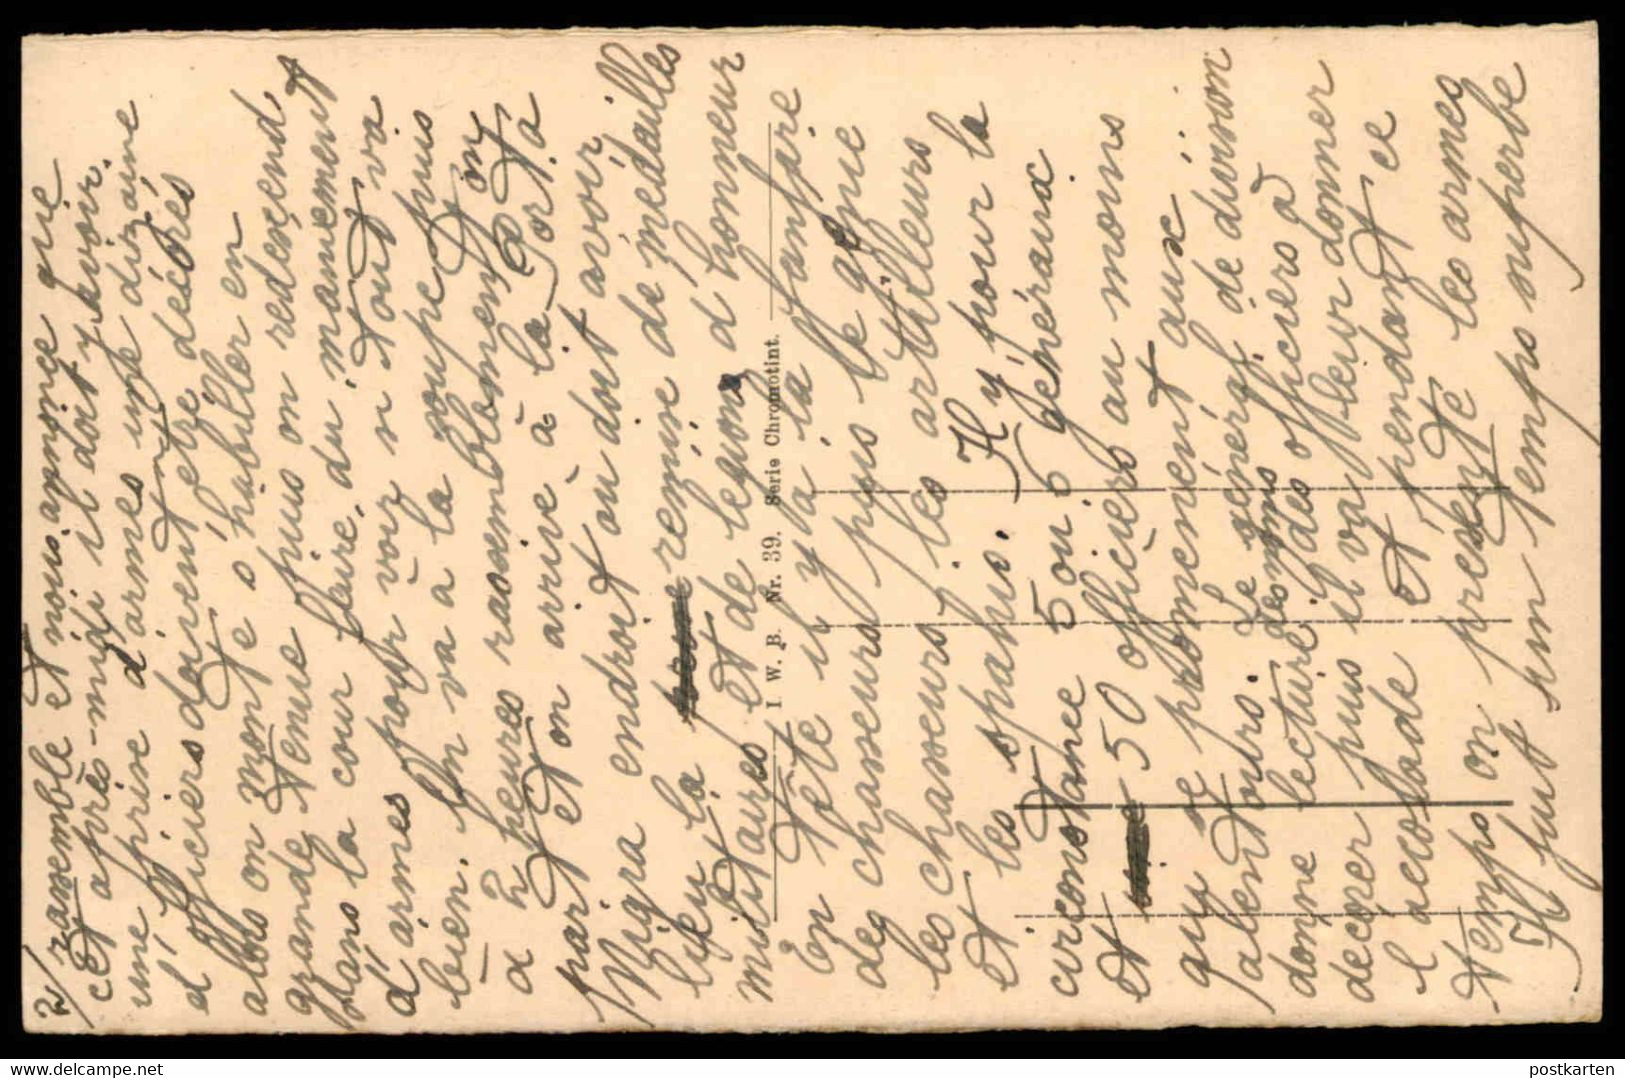 2/ rassemble et nous annonce que
cet après-midi il doit y avoir
une prise d'armes une dizaine
d'officiers doivent etre décorés
alors on monte s habiller en
grande tenue puis on redescend
dans la cour faire du maniement
d'armes pour voir si tout va
bien. On va à la soupe puis
à 2 heures rassemblement on
part et on arrive à la Porta
Nigra endroit ou doit avoir
lieu la remise de médailles
militaires et de legions d honneur
En tête il y a la fanfare
des chasseurs puis le génie
les chasseurs, les artilleurs
et les spahis. Il y pour la
circonstance 5 ou 6 généraux
et 50 officiers au moins
qui se promènent aux
alentours. Le général de division
donne lecture des noms des officiers à
décorer puis il va leur donner
l accolade et pendant ce
temps on présente les armes
Il fut un temps superbe
I. W. P. B. Nr. 39. Serie Chromotint.
postkarten